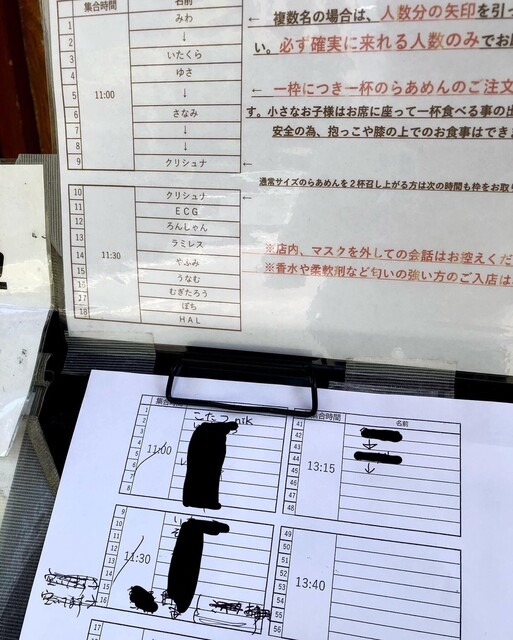 集合時間 名前
1 みわ
2 ↓
3 いたくら
4 ゆさ
5 11:00 ↓
6 さなみ
7 ↓
8 ↓
9 クリシュナ ←
← 複数名の場合は、人数分の矢印を引っ
い。必ず確実に来れる人数のみでお
← 一枠につき一杯のらあめんのご注文
す。小さなお子様はお席に座って一杯食べる事の出
安全の為、抱っこや膝の上でのお食事はでき
通常サイズのらあめんを2杯召し上がる方は次の時間も枠をお取り
10 クリシュナ ←
11 ECG
12 ろんしゃん
13 ラミレス
14 11:30 やふみ
15 うなむ
16 むぎたろう
17 ぽち
18 HAL
※店内、マスクを外しての会話はお控えくだ
※香水や柔軟剤など匂いの強い方のご入店は
集合
1 こたつnik
2
3
4
5 11:00
6
7
8
9
10
11
12
13 11:30
14
15
16
17
集合時間 名前
41
42
43 ↓
44 13:15
45 ↓
46
47
48
49
50
51
52
53 13:40
54
55
56